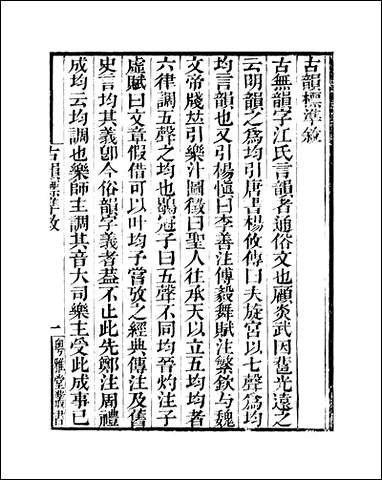 古韻標準敘
古無韻字江氏言韻者通俗文也顧炎武因葛光遠之
云明韻之爲均引唐書楊收傳曰夫旋宮以七聲爲均
均言韻也又引楊愼曰李善注傅毅舞賦注繁欽与魏
文帝牋竝引樂汁圖徵曰聖人往承天以立五均均者
六律調五聲之均也鶡冠子曰五聲不同均晉灼注子
虛賦曰文章假借可以叶均予嘗攷之經典傳注及舊
史言均其義卽今俗韻字義者葢不止此先鄭注周禮
成均云均調也樂師主調其音大司樂主受此成事已
古韻標準敘
一
粵雅堂叢書